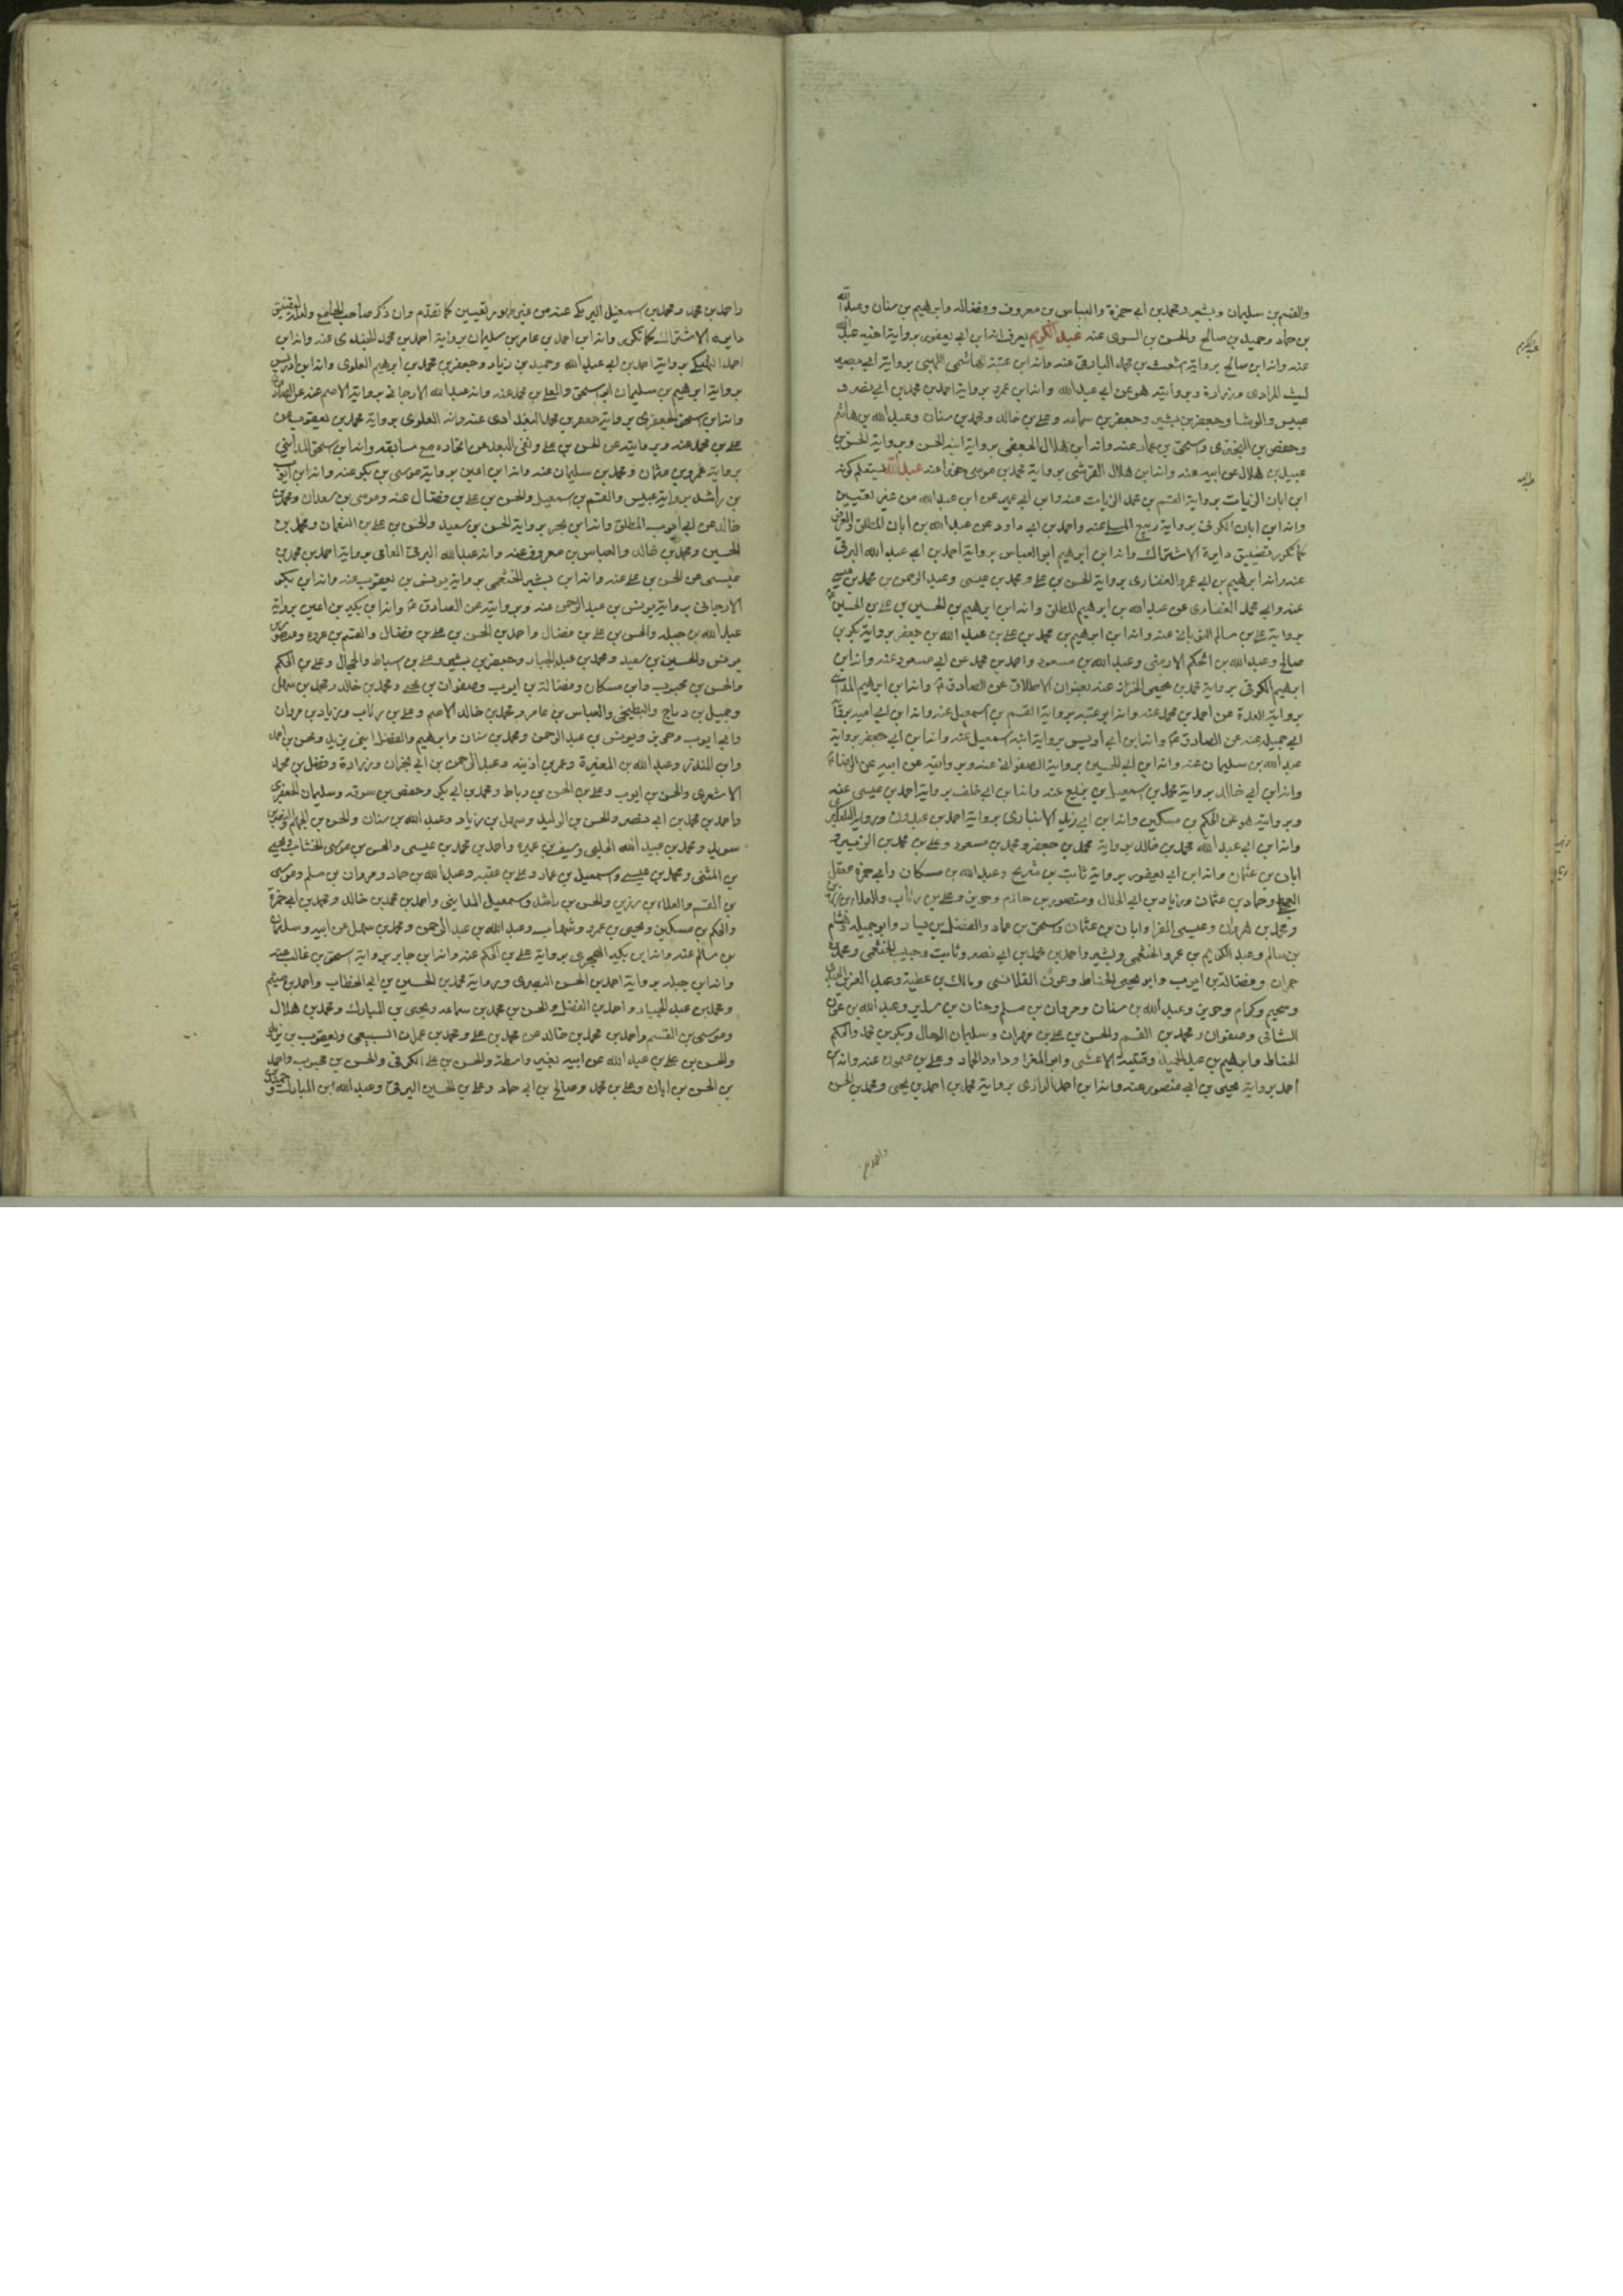 والقسم بن سليمان وبشير ومحمد بن ابي حمزة والعباس بن معروف وفضاله وابرهيم بن سنان وعبد الله
بن حماد وحميد بن صالح والحسن بن السرى عنه عبد الكريم يعرف انه ابن ابي يعفور برواية اخيه عبد الله
عنه وانه ابن صالح برواية شعيب بن محمد عنه وانه ابن عتبة الهاشمى اللهبى برواية ابي بصير
ليث المرادى وزرارة وبروايته هو عن ابي عبد الله وانه ابن عمرو برواية احمد بن محمد بن ابي نصر و
عبيس والوشا وجعفر بن بشير وجعفر بن سماعه وعلى بن خالد ومحمد بن سنان وعبد الله بن هاشم
وحفص بن البخترى واسحق بن عمار عنه وانه ابن هلال الجعفى برواية ابنه الحسن وبرواية الحسن بن
عبيد بن هلال عن ابيه عنه وانه ابن هلال القرشى برواية محمد بن موسى عنه عبد الله يستعلم كونه
ابن ابان الزيات برواية القسم بن محمد الزيات عنه وابن ابي عمير عن ابن عبد الله من غير تعيين
وانه ابن ابان الكوفى برواية ربيع عنه واحمد بن ابي داود عن عبد الله بن ابان المطلق والغرض
كما تكرر تضييق دايرة الاشتراك وانه ابن ابرهيم ابو العباس برواية احمد بن ابي عبد الله البرقى
عنه وانه ابرهيم بن ابي عمرو الغفارى برواية الحسن بن على ومحمد بن عيسى وعبد الرحمن بن محمد بن عيسى
عنه وابي محمد الغفارى عن عبد الله بن ابرهيم المطلق وانه ابن ابرهيم بن الحسين بن على بن الحسين
برواية على بن سالم عنه وانه ابن ابرهيم بن محمد بن على بن عبد الله بن جعفر برواية بكر بن
صالح وعبد الله بن الحكم الارمنى وعبد الله بن مسعود واحمد بن محمد عن ابي مسعود عنه وانه ابن
ابرهيم الكوفى برواية محمد بن يحيى الخزاز عنه بعنوان الاطلاق عن الصادق وانه ابن ابرهيم
برواية العدة عن احمد بن محمد عنه وانه ابو عتبه برواية القسم بن اسمعيل عنه وانه ابن ابي اميه برواية
ابي جميله عنه عن الصادق وانه ابن ابي أويس برواية ابنه اسمعيل عنه وانه ابن ابي جعفر برواية
عبد الله بن سليمان عنه وانه ابن ابي الحسين برواية الصفوانى عنه وبروايته عن ابيه عن الرضا
وانه ابن ابي خالد برواية محمد بن اسمعيل بن بزيع عنه وانه ابن ابي خلف برواية احمد بن عيسى عنه
وبروايته هو عن الحكم بن مسكين وانه ابن ابي زيد الانبارى برواية احمد بن عبدون
وانه ابن ابي عبد الله محمد بن خالد برواية محمد بن جعفر ومحمد بن مسعود وعلى بن محمد بن
ابان بن عثمان وانه ابن ابي يعفور برواية ثابت بن شريح وعبد الله بن مسكان وابي حمزة معقل
العجلى وحماد بن عثمان وزياد بن ابي الحلال ومنصور بن حازم وحريز وعلى بن رئاب والعلاء بن رزين
ومحمد بن حمران وعيسى الفرا وابان بن عثمان واسحق بن عمار والفضل بن يسار وابو جميله وهشام
بن سالم وعبد الكريم بن عمرو الخثعمى وبشير واحمد بن محمد بن ابي نصر وثابت وحبيب الخثعمى ومحمد بن
حمران وفضالة بن ايوب وابو يحيى الحناط وعوف القلانسى ومالك بن عطية وعبد العزيز العبدى
وسحيم وكرام وحريز وعبد الله بن سنان ومروان بن مسلم وحنان بن سدير وعبد الله بن عون
الشانى وصفوان ومحمد بن القسم والحسن بن على بن مهران وسليمان الدحال وبكر بن محمد والحكم
الحناط وابرهيم بن عبد الحميد وقتيبة الاعشى وابو المغرا وداود الحمار وعلى بن ميمون عنه وانه ابن
احمد برواية يحيى بن ابي منصور عنه وانه ابن احمد الرازى برواية محمد بن احمد بن يحيى ومحمد بن الحسن
واحمد بن
عبد الكريم
عبد الله
واحمد بن محمد ومحمد بن اسمعيل البرمكى عنه من غير ظهور تعيين كما تقدم وان ذكر صاحب الجامع ولعله لتضييق
دايرة الاشتراك كما تكرر وانه ابن احمد بن عامر بن سليمان برواية احمد بن محمد عنه وانه ابن
احمد برواية احمد بن ابي عبد الله وحميد بن زياد وجعفر بن محمد بن ابرهيم العلوى وانه ابن ادريس
برواية ابرهيم بن سليمان ابي اسحق والمعلى بن محمد عنه وانه عبد الله الارجانى برواية الاصم عنه عن الصادق
وانه ابن اسحق الجعفرى برواية جعفر بن محمد البغدادى عنه وانه العلوى برواية محمد بن يعقوب عن
على بن محمد عنه وبروايته عن الحسن بن على ونفى البعد عن اتحاده مع سابقه وانه ابن اسحق المداينى
برواية عمرو بن عثمان ومحمد بن سليمان عنه وانه ابن اعين برواية موسى بن بكر عنه وانه ابن ايوب
بن راشد برواية عبيس والقسم بن اسمعيل والحسن بن على بن فضال عنه وموسى بن سعدان ومحمد بن
خالد عن ابي ايوب المطلق وانه ابن بحر برواية الحسن بن سعيد والحسن بن على بن النعمان ومحمد بن
الحسين ومحمد بن خالد والعباس بن معروف عنه وانه عبد الله البرقى العامى برواية احمد بن محمد بن
عيسى عن الحسن بن على عنه وانه ابن بشير الخثعمى برواية يونس بن يعقوب عنه وانه ابن بكر
الارجانى برواية يونس بن عبد الرحمن عنه وبروايته عن الصادق وانه ابن بكير بن اعين برواية
عبد الله بن جبله والحسن بن على بن فضال واحمد بن الحسن بن على بن فضال والقسم بن عروه ومنصور بن
يونس والحسين بن سعيد ومحمد بن عبد الجبار وجعفر بن بشير وعلى بن اسباط والحجال وعلى بن الحكم
والحسن بن محبوب وابن مسكان وفضالة بن ايوب وصفوان بن يحيى ومحمد بن خالد ومحمد بن سهل
وجميل بن دراج والبطيخى والعباس بن عامر ومحمد بن خالد الاصم وعلى بن رئاب وزياد بن مروان
وابي ايوب وحريز ويونس بن عبد الرحمن ومحمد بن سنان وابرهيم والفضل ابنى يزيد ومحسن بن احمد
وابن المنذر وعبد الله بن المغيرة وعمر بن اذينه وعبد الرحمن بن ابي نجران وزرارة وفضل بن محمد
الاشعرى والحسن بن ايوب وعلى بن الحسن بن رباط ومحمد بن ابي بكر وحفص بن سوقه وسليمان الجعفرى
واحمد بن محمد بن ابي نصر والحسن بن الوليد وسهل بن زياد وعبد الله بن سنان والحسن بن الجهم والنضر بن
سويد ومحمد بن عبيد الله الحلبى وسيف بن عميره واحمد بن محمد بن عيسى والحسن بن موسى الخشاب ويحيى
بن المثنى ومحمد بن عيسى واسمعيل بن عمار وعلى بن عقبه وعبد الله بن حماد ومروان بن مسلم وموسى
بن القسم والعلاء بن رزين والحسن بن راشد واسمعيل المداينى واحمد بن محمد بن خالد ومحمد بن ابي حمزة
والحكم بن مسكين ويحيى بن عمرو وشهاب وعبد الله بن عبد الرحمن ومحمد بن سهل عن ابيه وسليمان
بن سالم عنه وانه ابن بكير الهجرى برواية على بن الحكم عنه وانه ابن جابر برواية اسحق بن غالب عنه
وانه ابن جبله برواية احمد بن الحسن البصرى وبرواية محمد بن الحسين بن ابي الخطاب واحمد بن ميثم
ومحمد بن عبد الجبار واحمد بن الفضل والحسن بن محمد بن سماعه ويحيى بن المبارك ومحمد بن هلال
وموسى بن القسم واحمد بن محمد بن خالد عن محمد بن على ومحمد بن عمران السبيعى ويعقوب بن يزيد
والحسن بن على بن عبد الله عن ابيه بغير واسطة والحسن بن على الكوفى والحسن بن محبوب واحمد
بن الحسن بن ابان وعلى بن محمد وصالح بن ابي حماد وعلى بن الحسين البرقى وعبد الله ابن المبارك